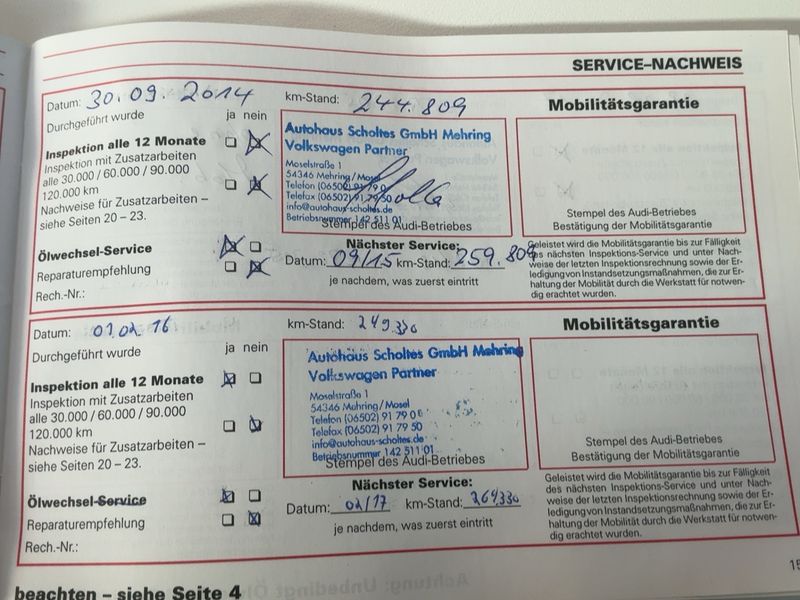 SERVICE–NACHWEIS
Datum: 30.09.2014
km-Stand: 244.809
Mobilitätsgarantie
Durchgeführt wurde
ja nein
Inspektion alle 12 Monate
Inspektion mit Zusatzarbeiten
alle 30.000 / 60.000 / 90.000
120.000 km
Nachweise für Zusatzarbeiten –
siehe Seiten 20 – 23.
Ölwechsel-Service
Reparaturempfehlung
Rech.-Nr.:
Autohaus Scholtes GmbH Mehring
Volkswagen Partner
Moselstraße 1
54346 Mehring/Mosel
Telefon (06502) 91 79 0
Telefax (06502) 91 79 50
info@autohaus-scholtes.de
Betriebsnummer 142 511 01
Stempel des Audi-Betriebes
Nächster Service:
Datum: 09/15 km-Stand: 259.809
je nachdem, was zuerst eintritt
Stempel des Audi-Betriebes
Bestätigung der Mobilitätsgarantie
Geleistet wird die Mobilitätsgarantie bis zur Fälligkeit
des nächsten Inspektions-Service und unter Nach-
weise der letzten Inspektionsrechnung sowie der Er-
ledigung von Instandsetzungsmaßnahmen, die zur Er-
haltung der Mobilität durch die Werkstatt für notwen-
dig erachtet wurden.
Datum: 01.02.16
km-Stand: 249.330
Mobilitätsgarantie
Durchgeführt wurde
ja nein
Inspektion alle 12 Monate
Inspektion mit Zusatzarbeiten
alle 30.000 / 60.000 / 90.000
120.000 km
Nachweise für Zusatzarbeiten –
siehe Seiten 20 – 23.
Ölwechsel-Service
Reparaturempfehlung
Rech.-Nr.:
Autohaus Scholtes GmbH Mehring
Volkswagen Partner
Moselstraße 1
54346 Mehring/Mosel
Telefon (06502) 91 79 0
Telefax (06502) 91 79 50
info@autohaus-scholtes.de
Betriebsnummer 142 511 01
Stempel des Audi-Betriebes
Nächster Service:
Datum: 02/17 km-Stand: 264.330
je nachdem, was zuerst eintritt
Stempel des Audi-Betriebes
Bestätigung der Mobilitätsgarantie
Geleistet wird die Mobilitätsgarantie bis zur Fälligkeit
des nächsten Inspektions-Service und unter Nach-
weise der letzten Inspektionsrechnung sowie der Er-
ledigung von Instandsetzungsmaßnahmen, die zur Er-
haltung der Mobilität durch die Werkstatt für notwen-
dig erachtet wurden.
beachten – siehe Seite 4